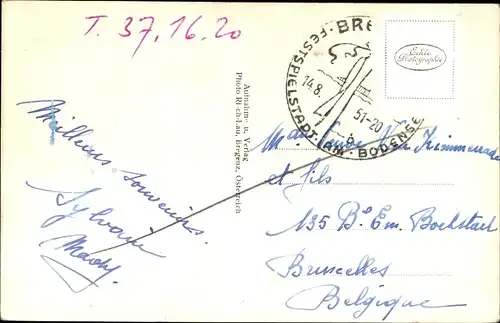 T. 37.16.20
Meilleurs souvenirs.
Sylvain
Mady.
Aufnahme- u. Verlag
Photo Risch-Lau, Bregenz, Österreich
BRE
14.8. 51-20
FESTSPIELSTADT · AM · BODENSEE
Echte
Photographie
et fils
135 Bd Em. Bockstael
Bruxelles
Belgique